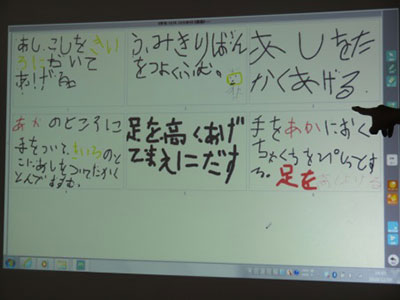 あし、こしをきい
ろにむいて
あげる
ふみきりばん
をつよくふむ。
あしをた
かくあげる.
あかのところに
手をついて、きいろのと
こにあしをついてたかく
とんですすむ。
足を高くあげ
てまえにだす
手をあかにおく
ちゃくちをぴしっとす
る。足を